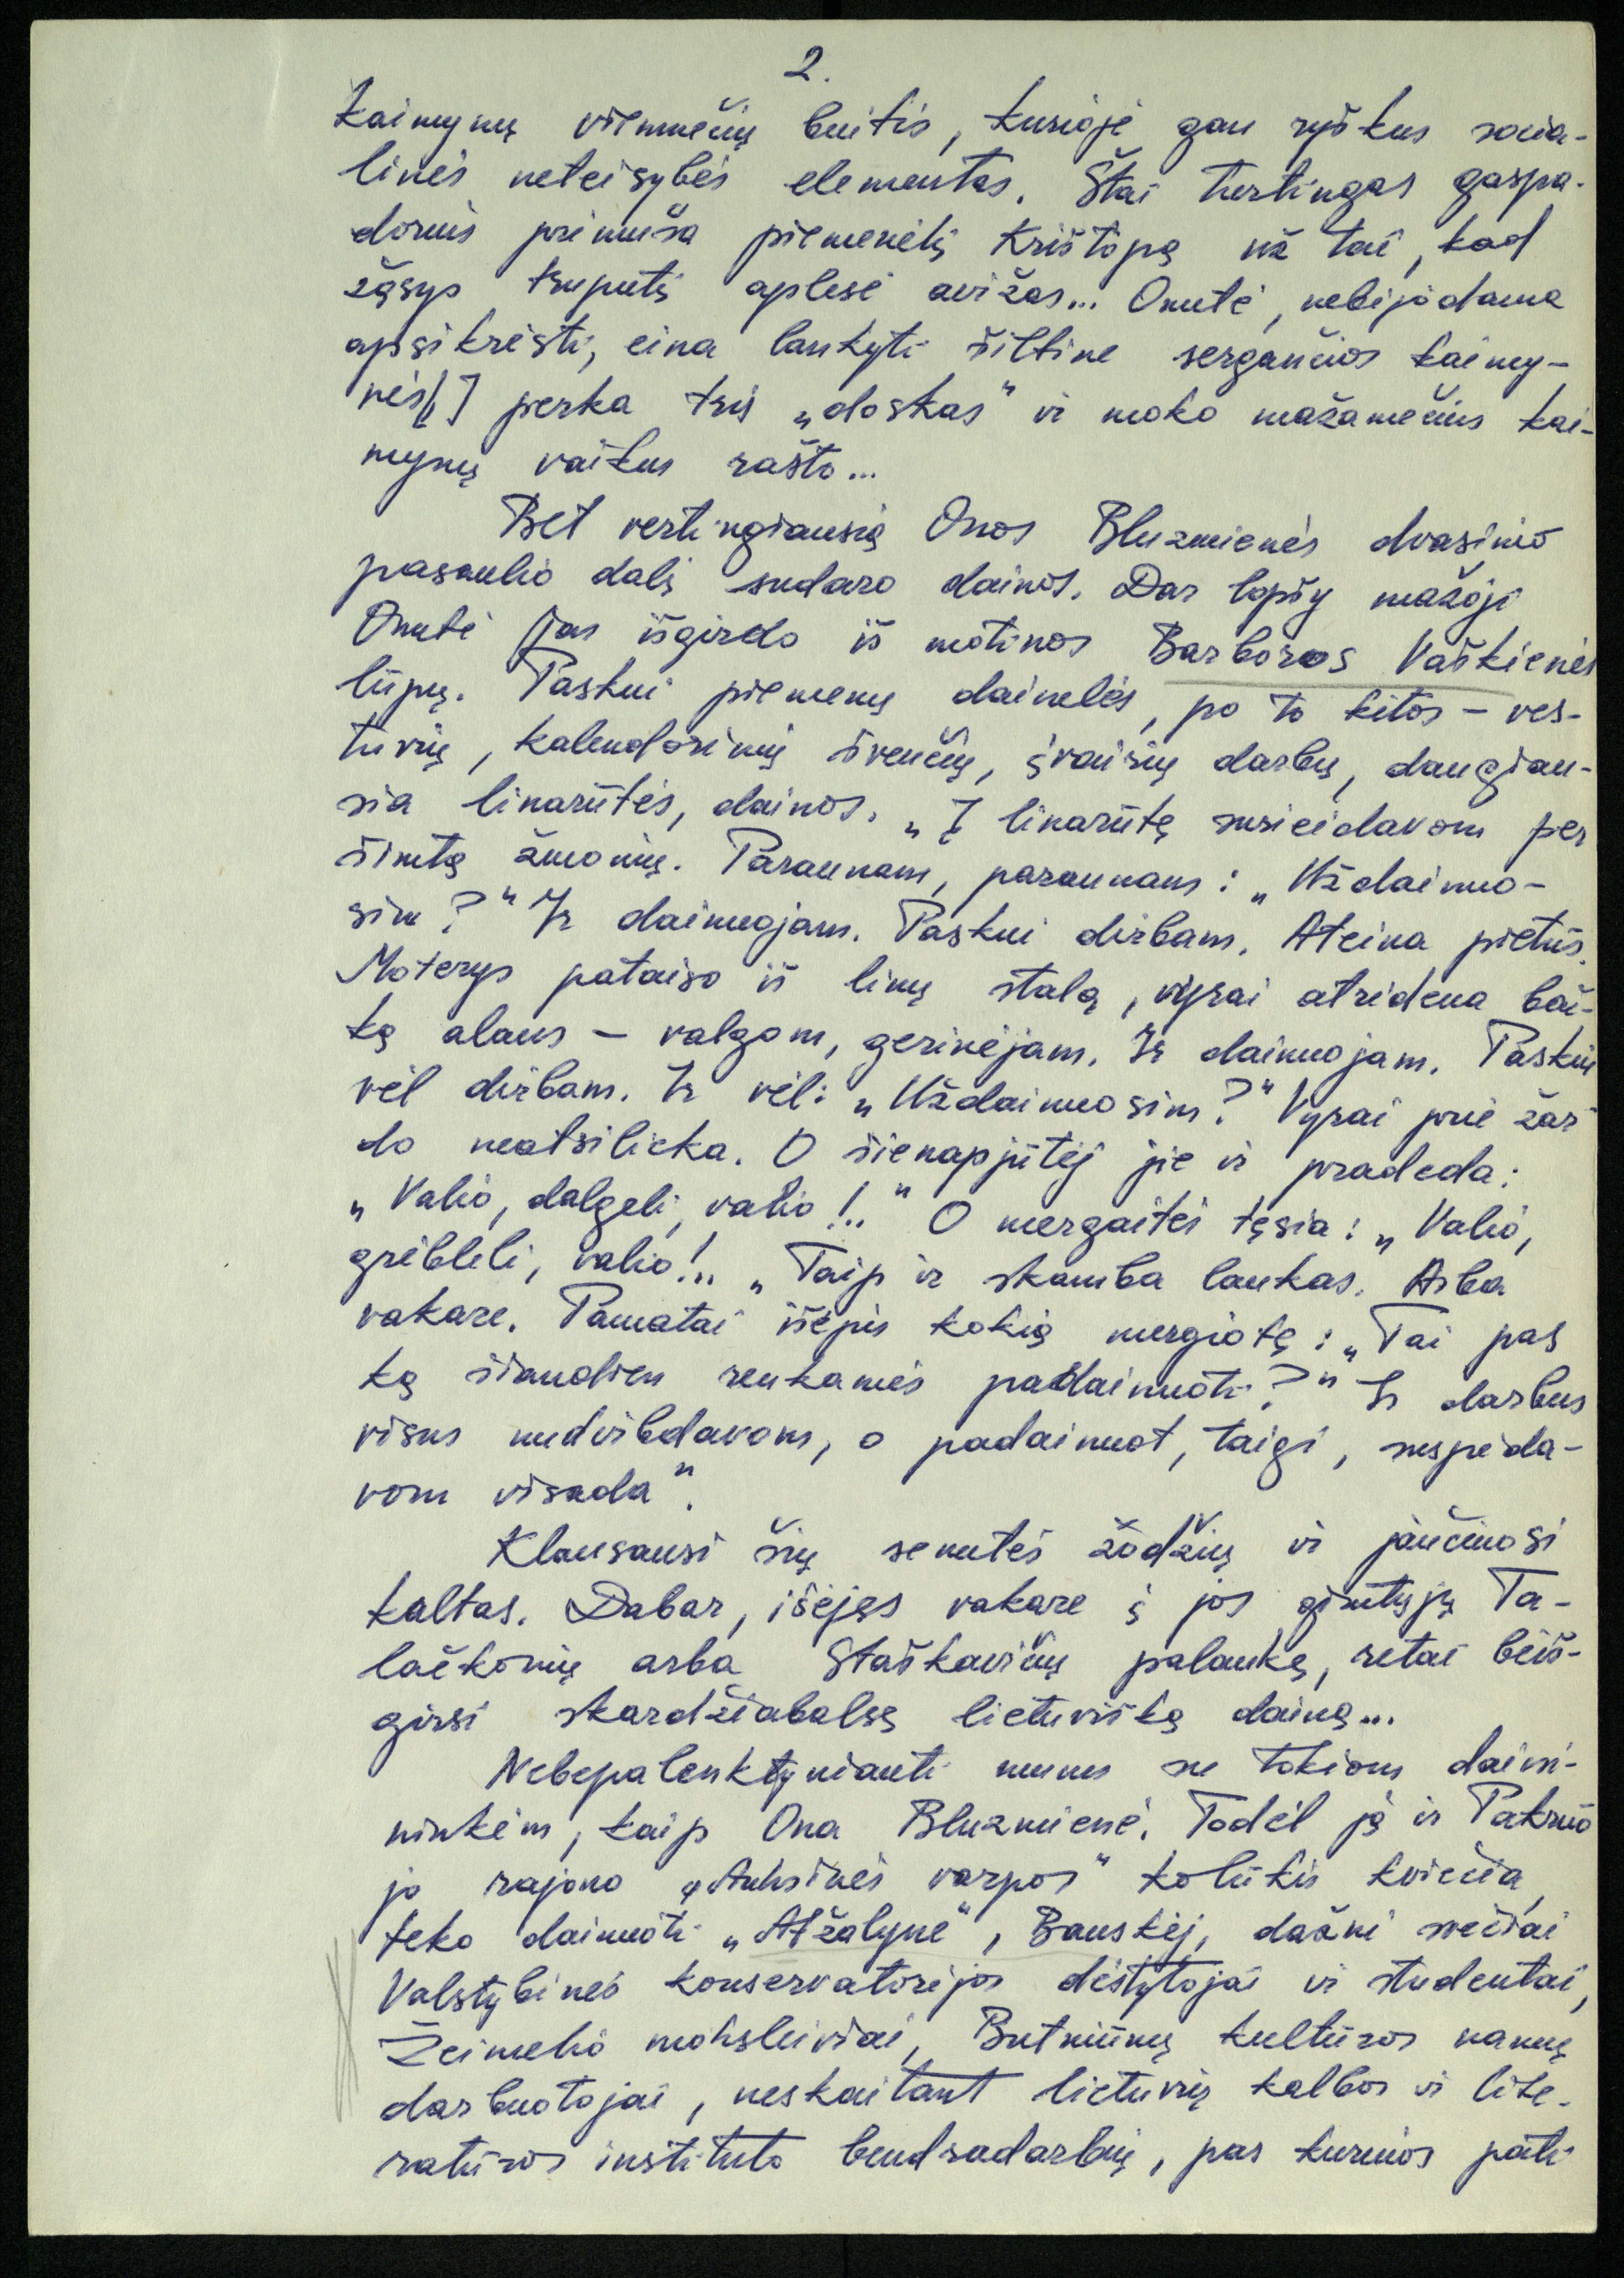 2.
kaimynų vienmečių buitis, kurioje gan ryškus socia-
linės neteisybės elementas. Štai turtingas gaspa-
dorius primuša piemenėlį Krištopą už tai, kad
žąsys truputį aplesė avižas... Onutė, nebijodama
apsikrėsti, eina lankyti šiltine sergančios kaimy-
nės[,] perka tris „doskas" ir moko mažamečius kai-
mynų vaikus rašto...
Bet vertingiausią Onos Bluzmienės dvasinio
pasaulio dalį sudaro dainos. Dar lopšy mažoji
Onutė jas išgirdo iš motinos Barboros Vaškienės
lūpų. Paskui piemenų dainelės, po to kitos – ves-
tuvių, kalendorinių švenčių, įvairių darbų, daugiau-
sia linarūtės, dainos. „Į linarūtę susieidavom per
šimtą žmonių. Paraunam, paraunam: „Uždainuo-
sim?" Ir dainuojam. Paskui dirbam. Ateina pietūs.
Moterys pataiso iš linų stalą, vyrai atridena bač-
ką alaus – valgom, gerinėjam. Ir dainuojam. Paskui
vėl dirbam. Ir vėl: „Uždainuosim?" Vyrai prie žar
do neatsilieka. O šienapjūtėj jie ir pradeda:
„Valio, dalgeli, valio!.." O mergaitės tęsia: „Valio,
grėbleli, valio!.. „Taip ir skamba laukas. Arba
vakare. Pamatai išėjus kokią mergiotę: „Tai pas
ką šiandien renkamės padainuoti?" Ir darbus
visus nudirbdavom, o padainuot, taigi, suspėda-
vom visada".
Klausausi šių senutės žodžių ir jaučiuosi
kaltas. Dabar, išėjęs vakare į jos gimtųjų Ta-
lačkonių arba Staškavičių palaukę, retai beiš-
girsi skardžiabalsę lietuvišką dainą...
Nebepalenktyniauti mums su tokiom daini-
ninkėm, kaip Ona Bluzmienė. Todėl ją ir Pakruo
jo rajono „Auksinės varpos" kolūkis kviečia,
teko dainuoti „Atžalyne", Bauskėj, dažni svečiai
Valstybinės konservatorijos dėstytojai ir studentai,
Žeimelio moksleiviai, Butniūnų kultūros namų
darbuotojai, neskaitant lietuvių kalbos ir lite-
ratūros instituto bendradarbių, pas kuriuos pati